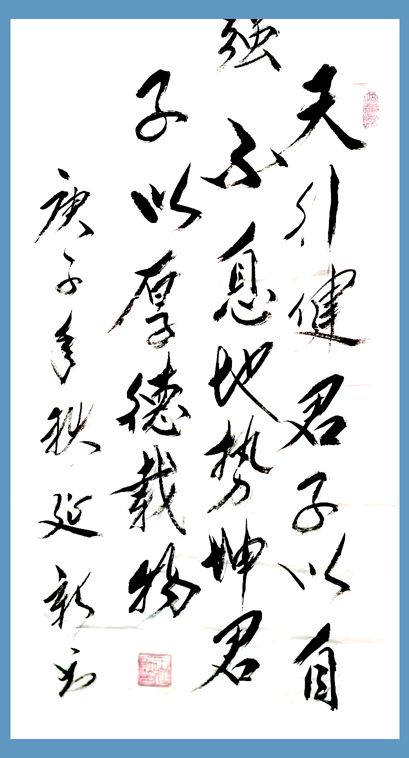 天行健君子以自
强不息地势坤君
子以厚德载物
庚子年秋延新书